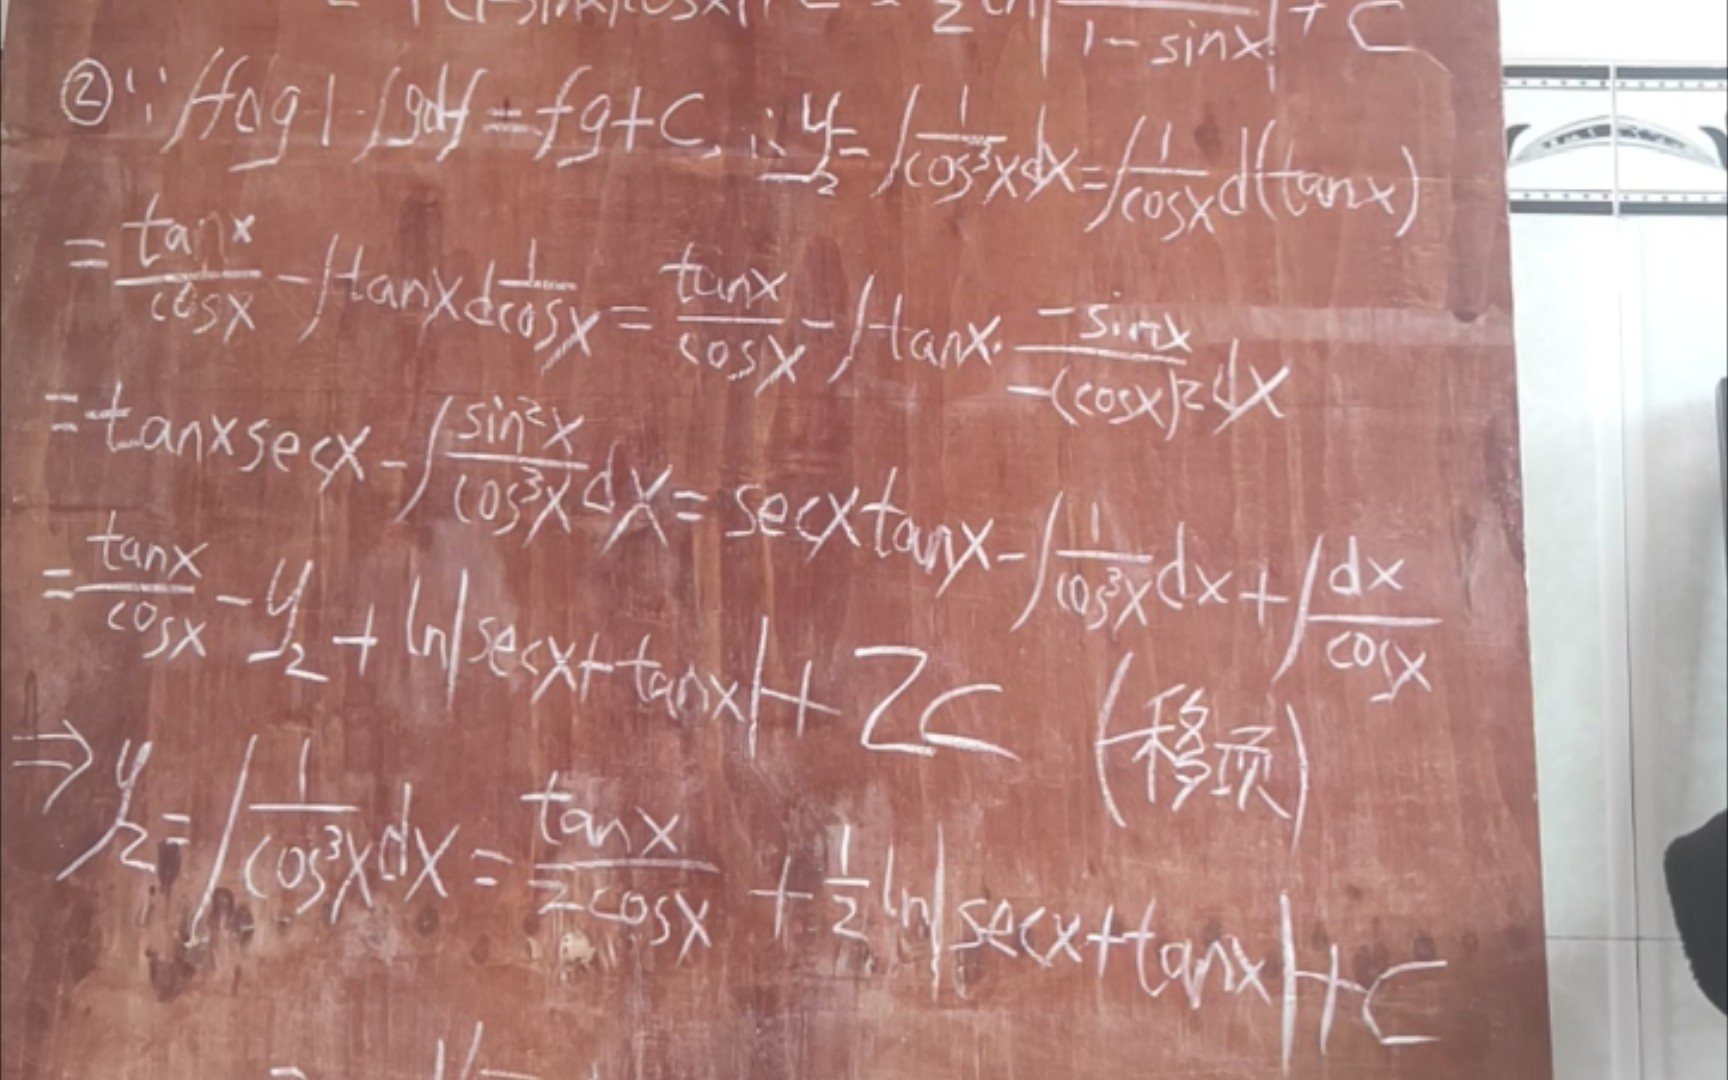 1-sinx + C
② ∵ ∫fdg + ∫gdf = fg + C, ∴ y₂ = ∫ 1/cos³x dx = ∫ 1/cosx d(tanx)
= tanx/cosx - ∫tanx d 1/cosx = tanx/cosx - ∫tanx · -sinx/-(cosx)² dx
= tanxsecx - ∫ sin²x/cos³x dx = secxtanx - ∫ 1/cos³x dx + ∫ dx/cosx
= tanx/cosx - y₂ + ln|secx+tanx| + 2C (移项)
⇒ y₂ = ∫ 1/cos³x dx = tanx/2cosx + 1/2 ln|secx+tanx| + C